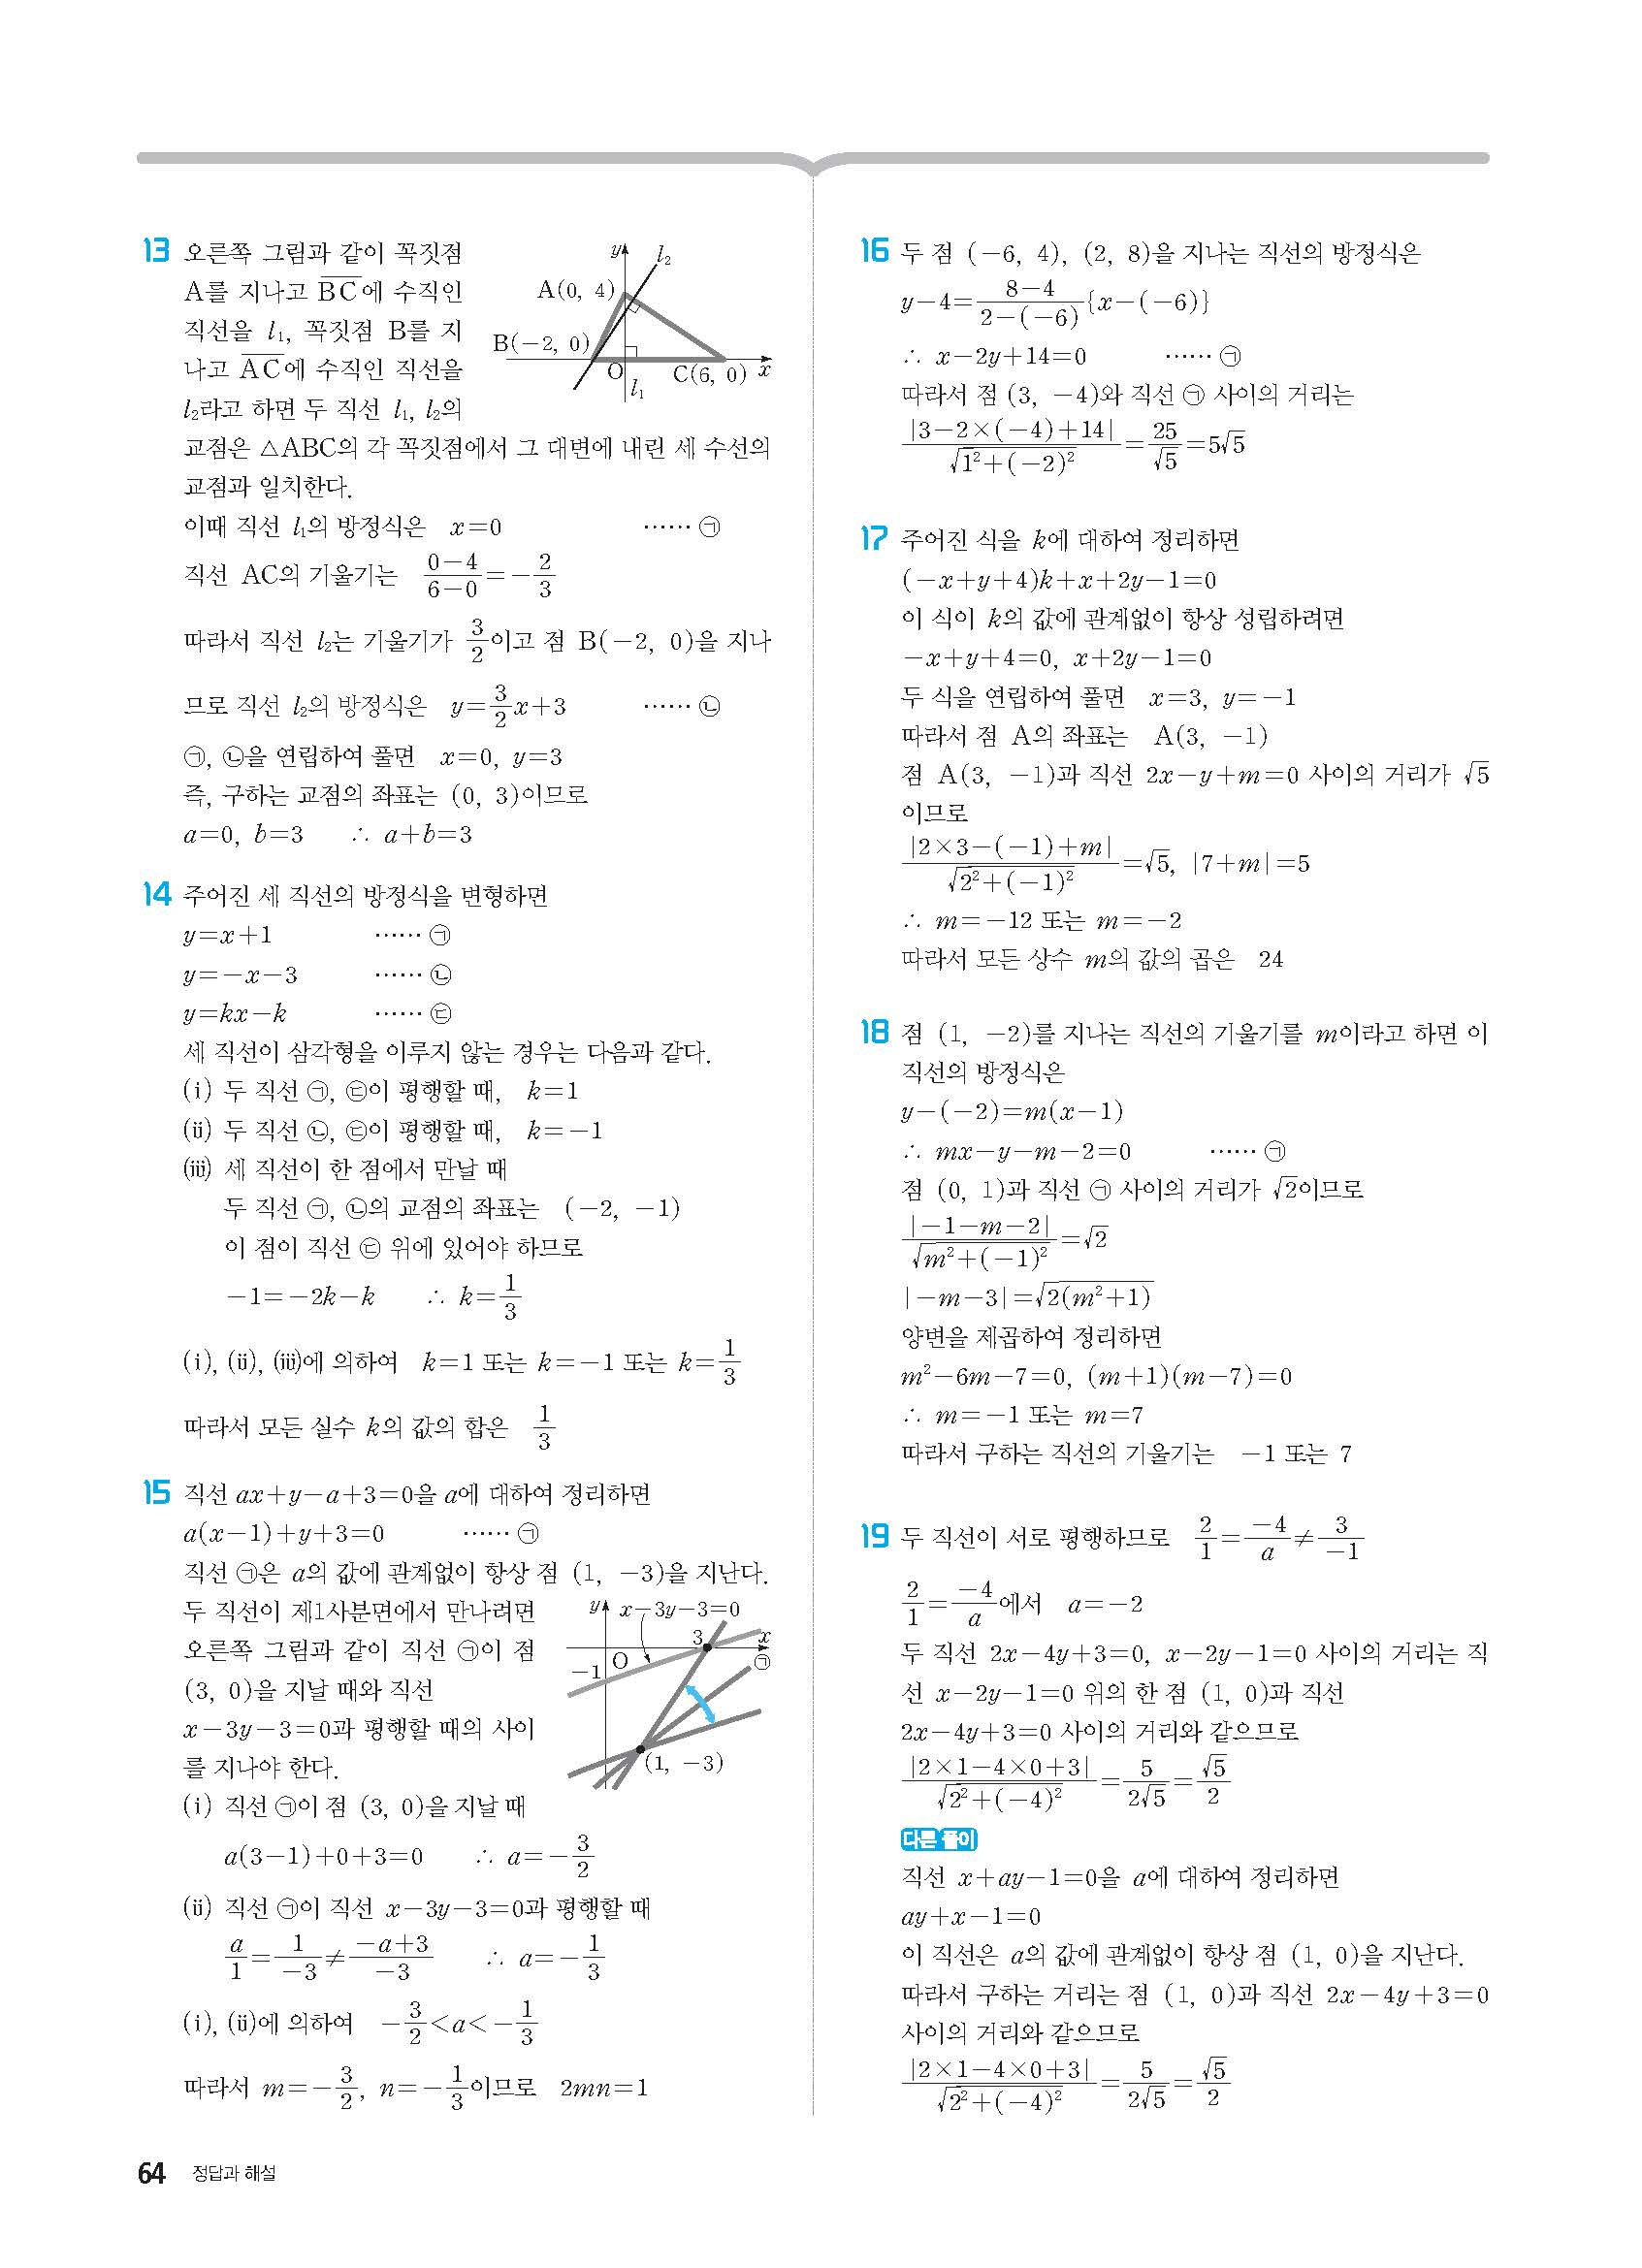 13 오른쪽 그림과 같이 꼭짓점
A를 지나고 BC에 수직인
직선을 l₁, 꼭짓점 B를 지
나고 AC에 수직인 직선을
l₂라고 하면 두 직선 l₁, l₂의
y
l₂
A(0, 4)
B(-2, 0)
O
l₁
C(6, 0)
x
교점은 △ABC의 각 꼭짓점에서 그 대변에 내린 세 수선의
교점과 일치한다.
이때 직선 l₁의 방정식은 x=0 …… ㉠
직선 AC의 기울기는 (0-4)/(6-0)=-2/3
따라서 직선 l₂는 기울기가 3/2이고 점 B(-2, 0)을 지나
므로 직선 l₂의 방정식은 y=3/2x+3 …… ㉡
㉠, ㉡을 연립하여 풀면 x=0, y=3
즉, 구하는 교점의 좌표는 (0, 3)이므로
a=0, b=3 ∴ a+b=3
14 주어진 세 직선의 방정식을 변형하면
y=x+1 …… ㉠
y=-x-3 …… ㉡
y=kx-k …… ㉢
세 직선이 삼각형을 이루지 않는 경우는 다음과 같다.
(ⅰ) 두 직선 ㉠, ㉢이 평행할 때, k=1
(ⅱ) 두 직선 ㉡, ㉢이 평행할 때, k=-1
(ⅲ) 세 직선이 한 점에서 만날 때
두 직선 ㉠, ㉡의 교점의 좌표는 (-2, -1)
이 점이 직선 ㉢ 위에 있어야 하므로
-1=-2k-k ∴ k=1/3
(ⅰ), (ⅱ), (ⅲ)에 의하여 k=1 또는 k=-1 또는 k=1/3
따라서 모든 실수 k의 값의 합은 1/3
15 직선 ax+y-a+3=0을 a에 대하여 정리하면
a(x-1)+y+3=0 …… ㉠
직선 ㉠은 a의 값에 관계없이 항상 점 (1, -3)을 지난다.
두 직선이 제1사분면에서 만나려면
오른쪽 그림과 같이 직선 ㉠이 점
(3, 0)을 지날 때와 직선
x-3y-3=0과 평행할 때의 사이
를 지나야 한다.
y
x-3y-3=0
3
x
O
-1
㉠
(1, -3)
(ⅰ) 직선 ㉠이 점 (3, 0)을 지날 때
a(3-1)+0+3=0 ∴ a=-3/2
(ⅱ) 직선 ㉠이 직선 x-3y-3=0과 평행할 때
a/1=1/-3≠(-a+3)/-3 ∴ a=-1/3
(ⅰ), (ⅱ)에 의하여 -3/2<a<-1/3
따라서 m=-3/2, n=-1/3이므로 2mn=1
16 두 점 (-6, 4), (2, 8)을 지나는 직선의 방정식은
y-4=(8-4)/(2-(-6)){x-(-6)}
∴ x-2y+14=0 …… ㉠
따라서 점 (3, -4)와 직선 ㉠ 사이의 거리는
|3-2×(-4)+14|/√(1²+(-2)²)=25/√5=5√5
17 주어진 식을 k에 대하여 정리하면
(-x+y+4)k+x+2y-1=0
이 식이 k의 값에 관계없이 항상 성립하려면
-x+y+4=0, x+2y-1=0
두 식을 연립하여 풀면 x=3, y=-1
따라서 점 A의 좌표는 A(3, -1)
점 A(3, -1)과 직선 2x-y+m=0 사이의 거리가 √5
이므로
|2×3-(-1)+m|/√(2²+(-1)²)=√5, |7+m|=5
∴ m=-12 또는 m=-2
따라서 모든 상수 m의 값의 곱은 24
18 점 (1, -2)를 지나는 직선의 기울기를 m이라고 하면 이
직선의 방정식은
y-(-2)=m(x-1)
∴ mx-y-m-2=0 …… ㉠
점 (0, 1)과 직선 ㉠ 사이의 거리가 √2이므로
|-1-m-2|/√(m²+(-1)²)=√2
|-m-3|=√(2(m²+1))
양변을 제곱하여 정리하면
m²-6m-7=0, (m+1)(m-7)=0
∴ m=-1 또는 m=7
따라서 구하는 직선의 기울기는 -1 또는 7
19 두 직선이 서로 평행하므로 2/1=-4/a≠3/-1
2/1=-4/a에서 a=-2
두 직선 2x-4y+3=0, x-2y-1=0 사이의 거리는 직
선 x-2y-1=0 위의 한 점 (1, 0)과 직선
2x-4y+3=0 사이의 거리와 같으므로
|2×1-4×0+3|/√(2²+(-4)²)=5/2√5=√5/2
다른 풀이
직선 x+ay-1=0을 a에 대하여 정리하면
ay+x-1=0
이 직선은 a의 값에 관계없이 항상 점 (1, 0)을 지난다.
따라서 구하는 거리는 점 (1, 0)과 직선 2x-4y+3=0
사이의 거리와 같으므로
|2×1-4×0+3|/√(2²+(-4)²)=5/2√5=√5/2
64 정답과 해설